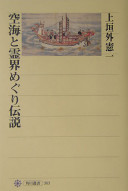 上垣外憲一
空海と霊界めぐり伝説
角川選書 361